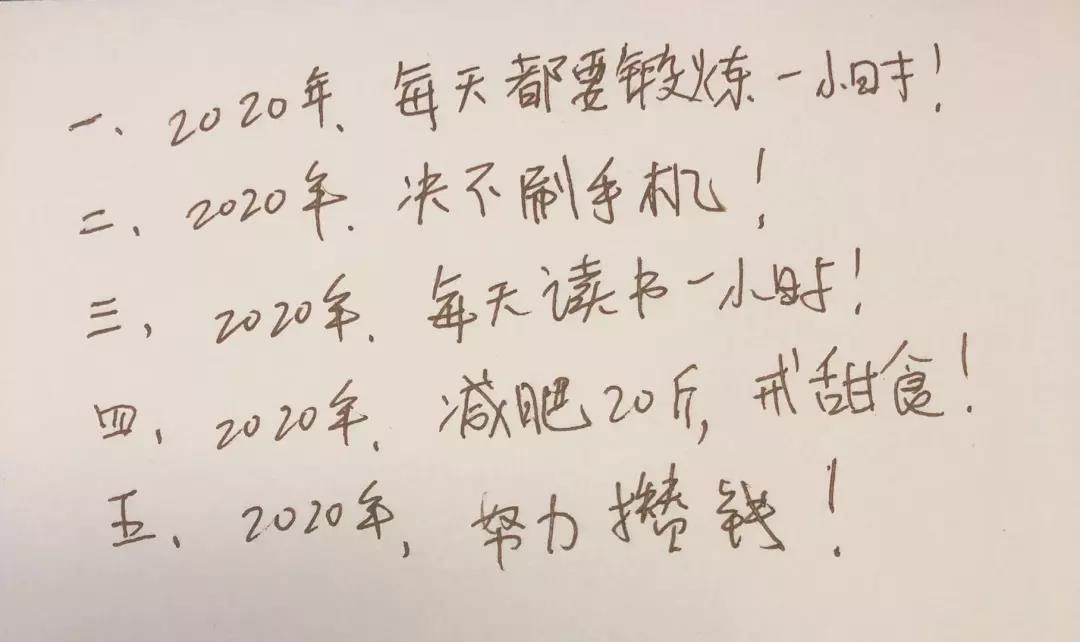 一、2020年，每天都要锻炼一小时！
二、2020年，决不刷手机！
三、2020年，每天读书一小时！
四、2020年，减肥20斤，戒甜食！
五、2020年，努力攒钱！